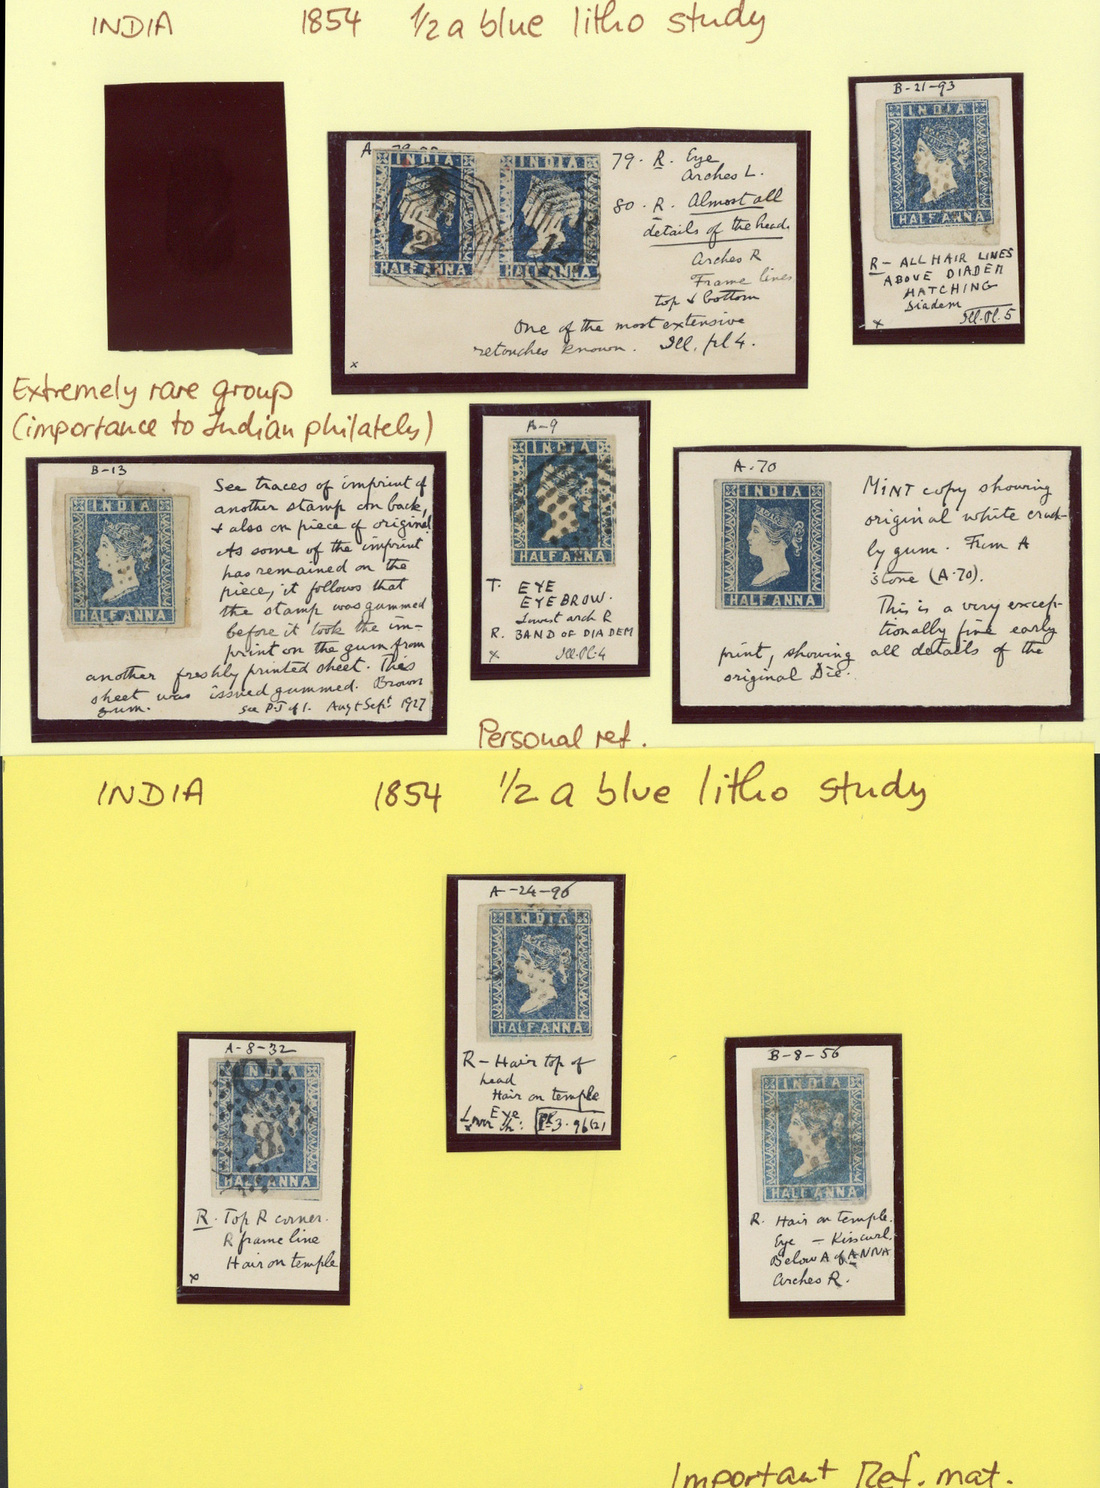 INDIA 1854 1/2 a blue litho study
B-21-93
INDIA
HALF ANNA
R - ALL HAIR LINES
ABOVE DIADEM
HATCHING
Diadem
Ill. Pl. 5
x
A
INDIA INDIA
12 12
HALF ANNA HALF ANNA
79. R. Eye
Arches L.
80. R. Almost all
details of the head.
Arches R
Frame lines
top & bottom
One of the most extensive
retouches known. Ill. pl 4.
x
Extremely rare group
(importance to Indian philately)
B-13
INDIA
HALF ANNA
See traces of imprint of
another stamp on back,
& also on piece of original
As some of the imprint
has remained on the
piece, it follows that
the stamp was gummed
before it took the im-
print on the gum from
another freshly printed sheet. This
sheet was issued gummed. Brown
gum. See P.J of I. Aug & Sept 1927
B-9
INDIA
HALF ANNA
T. EYE
EYEBROW.
Lowest arch R
R. BAND OF DIADEM
x Ill. Pl. 4
A-70
INDIA
HALF ANNA
MINT copy showing
original white crack-
ly gum. From A
stone (A-70).
This is a very excep-
tionally fine early
print, showing all details of the
original Die.
Personal ref.
INDIA 1854 1/2 a blue litho study
A-24-96
INDIA
HALF ANNA
R - Hair top of
head
Hair on temple
Eye
Pl 3. 96(2)
x
A-8-32
INDIA
C
8
HALF ANNA
R. Top R corner.
R frame line
Hair on temple
x
B-8-56
INDIA
HALF ANNA
R. Hair on temple.
Eye - Kisscurl.
Below A of ANNA
Arches R.
Important Ref. mat.